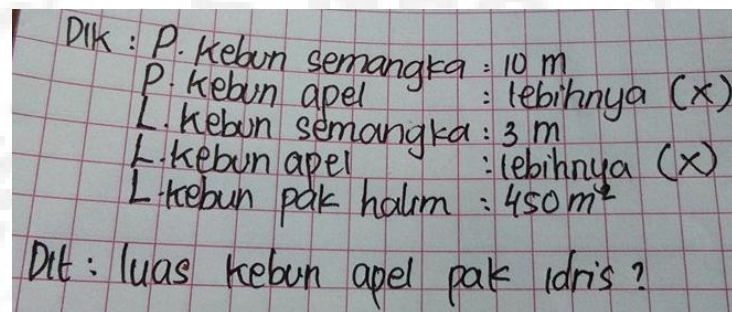 Dik : P. Kebun semangka : 10 m
P. Kebun apel : lebihnya (x)
L. Kebun semangka : 3 m
L. Kebun apel : lebihnya (x)
L. kebun pak halim : 450 m²
Dit : luas kebun apel pak idris ?